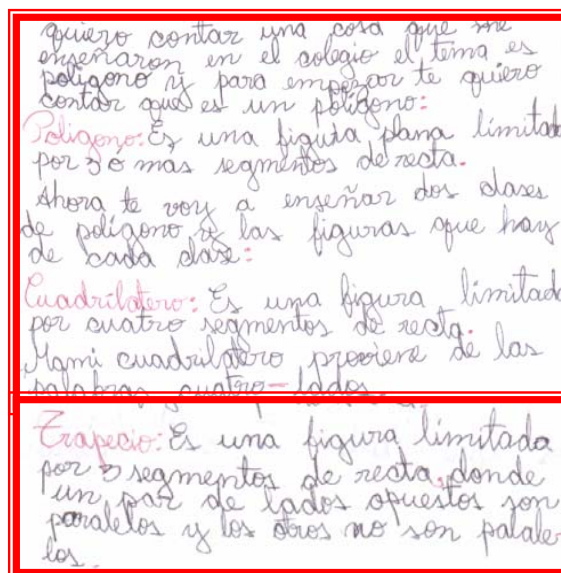 quiero contar una cosa que me
enseñaron en el colegio el tema es
polígono y para empezar te quiero
contar que es un polígono:
Polígono: Es una figura plana límitada
por 3 o más segmentos de recta.
Ahora te voy a enseñar dos clases
de polígono y las figuras que hay
de cada clase:
Cuadrilatero: Es una figura límitada
por cuatro segmentos de recta.
Mami cuadrilatero proviene de las
palabras cuatro-lados.
Trapecio: Es una figura límitada
por 3 segmentos de recta donde
un par de lados opuestos son
paralelos y los otros no son palale-
los.